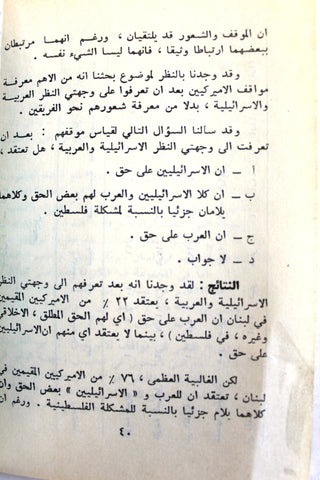 ان الموقف والشعور قد يلتقيان ، ورغم انهما مرتبطان
ببعضهما ارتباطا وثيقا ، فانهما ليسا الشيء نفسه .
وقد وجدنا بالنظر لموضوع بحثنا انه من الاهم معرفة
مواقف الاميركيين بعد ان تعرفوا على وجهتي النظر العربية
والاسرائيلية ، بدلا من معرفة شعورهم نحو الفريقين .
وقد سالنا السؤال التالي لقياس موقفهم : بعد ان
تعرفت الى وجهتي النظر الاسرائيلية والعربية ، هل تعتقد ،
أ ــ ان الاسرائيليين على حق .
ب ــ ان كلا الاسرائيليين والعرب لهم بعض الحق وكلاهما
يلامان جزئيا بالنسبة لمشكلة فلسطين .
ج ــ ان العرب على حق .
د ــ لا جواب .
النتائج : لقد وجدنا انه بعد تعرفهم الى وجهتي النظر
الاسرائيلية والعربية ، يعتقد ٢٢ ٪ من الاميركيين المقيمين
في لبنان ان العرب على حق ( اي لهم الحق المطلق ، الاخلاقي
وغيره ، في فلسطين ) ، بينما لا يعتقد اي منهم ان الاسرائيليين
على حق .
لكن الغالبية العظمى ، ٧٦ ٪ من الاميركيين المقيمين في
لبنان ، تعتقد ان للعرب و « الاسرائيليين » بعض الحق وان
كلاهما يلام جزئيا بالنسبة للمشكلة الفلسطينية . ورغم ان
٤٠